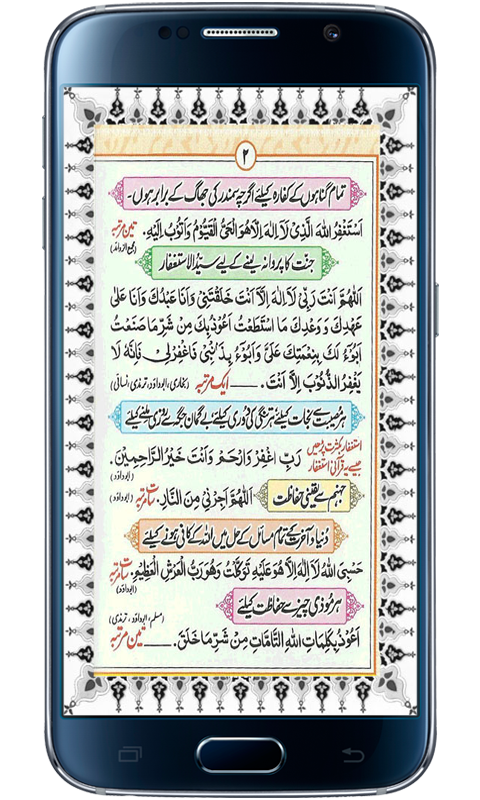 SAMSUNG
۲
تمام گناہوں کے کفارہ کیلئے اگرچہ سمندر کی جھاگ کے برابر ہوں۔
اَسْتَغْفِرُ اللهَ الَّذِىْ لَآ اِلٰهَ اِلَّا هُوَ الْحَىُّ الْقَيُّوْمُ وَاَتُوْبُ اِلَيْهِ. تین مرتبہ
(مجمع الزوائد)
جنت کا پروانہ بننے کے لیے سیدُ الاستغفار
اَللّٰهُمَّ اَنْتَ رَبِّىْ لَآ اِلٰهَ اِلَّآ اَنْتَ خَلَقْتَنِىْ وَاَنَا عَبْدُكَ وَاَنَا عَلٰى
عَهْدِكَ وَ وَعْدِكَ مَا اسْتَطَعْتُ اَعُوْذُ بِكَ مِنْ شَرِّ مَا صَنَعْتُ
اَبُوْٓءُ لَكَ بِنِعْمَتِكَ عَلَىَّ وَاَبُوْٓءُ بِذَنْۢبِىْ فَاغْفِرْلِىْ فَاِنَّهٗ لَا
يَغْفِرُ الذُّنُوْبَ اِلَّآ اَنْتَ. ..... ایک مرتبہ (بخاری، ابوداؤد، ترمذی، نسائی)
ہر مصیبت سے نجات کیلئے ہر تنگی کی دُوری کیلئے بے گمان جگہ سے روزی ملنے کیلئے
استغفار بکثرت پڑھیں
جیسے یہ قرآنی استغفار
رَبِّ اغْفِرْ وَارْحَمْ وَاَنْتَ خَيْرُ الرَّاحِمِيْنَ.
(ابوداؤد)
جہنم سے یقینی حفاظت
اَللّٰهُمَّ اَجِرْنِىْ مِنَ النَّارِ. سات مرتبہ
(ابوداؤد)
دُنیا و آخرت کے تمام مسائل کے حل میں اللہ کے کافی ہونے کیلئے
حَسْبِىَ اللهُ لَآ اِلٰهَ اِلَّا هُوَ عَلَيْهِ تَوَكَّلْتُ وَهُوَ رَبُّ الْعَرْشِ الْعَظِيْمِ. سات مرتبہ
(ابوداؤد)
ہر موذی چیز سے حفاظت کیلئے
(مسلم، ابوداؤد، ترمذی)
اَعُوْذُ بِكَلِمَاتِ اللهِ التَّامَّاتِ مِنْ شَرِّ مَا خَلَقَ. ..... تین مرتبہ